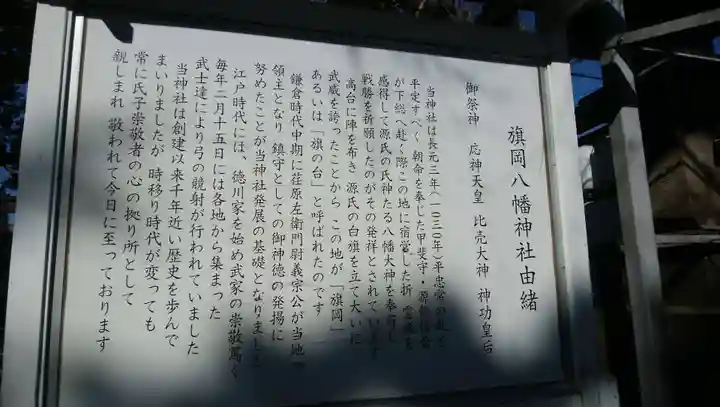 旗岡八幡神社由緒
御祭神 応神天皇 比売大神 神功皇后
当神社は長元三年(一〇三〇年)平忠常の乱を
平定すべく 朝命を奉じた甲斐守・源頼信公
が下総へ赴く際この地に宿営した折 霊威を
感得して源氏の氏神たる八幡大神を奉斎し
戦勝を祈願したのがその発祥とされています
高台に陣を布き 源氏の白旗を立て大いに
武威を誇ったことから この地が「旗岡」
あるいは「旗の台」と呼ばれたのです
鎌倉時代中期に荏原左衛門尉義宗公が当地
領主となり 鎮守としての御神徳の発揚に
努めたことが当神社発展の基礎となりました
江戸時代には、徳川家を始め武家の崇敬篤く
毎年二月十五日には各地から集まった
武士達により弓の競射が行われていました
当神社は創建以来千年近い歴史を歩んで
まいりましたが 時移り時代が変っても
常に氏子崇敬者の心の拠り所として
親しまれ 敬われて今日に至っております